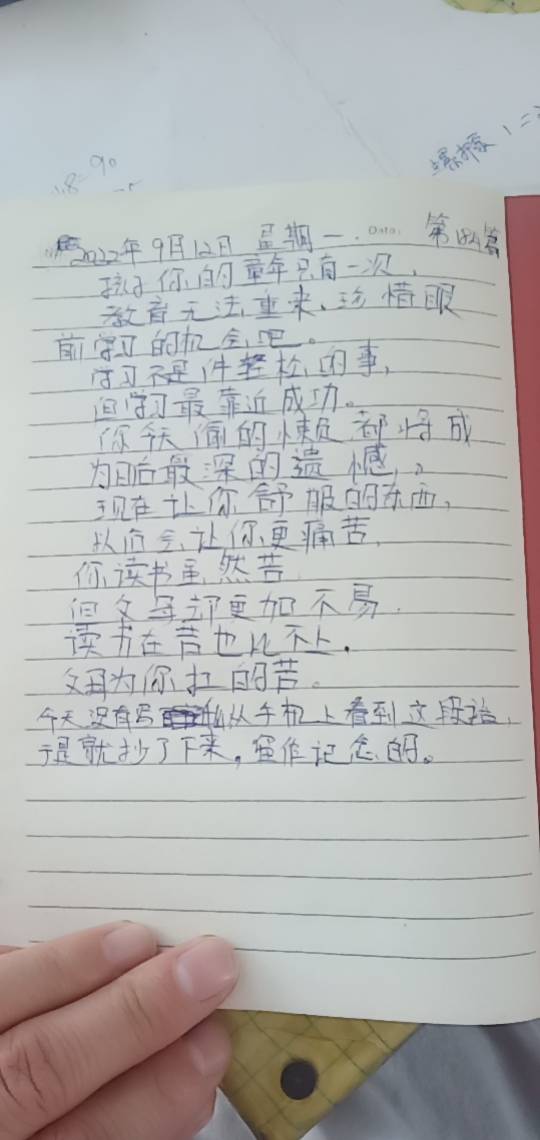 螺擦 1=
18=90
2022年9月12日 星期一. Data: 第 篇
孩子你的童年只有一次,
教育无法重来、珍惜眼
前学习的机会吧。
学习不是件轻松的事,
但学习最靠近成功。
你今天偷的懒都将成
为日后最深的遗憾,。
现在让你舒服的东西,
以后会让你更痛苦,
你读书虽然苦
但父母却更加不易.
读书在苦也比不上.
父母为你扛的苦。
今天没有写 从手机上看到文段话,
于是就抄了下来,留作记念的。